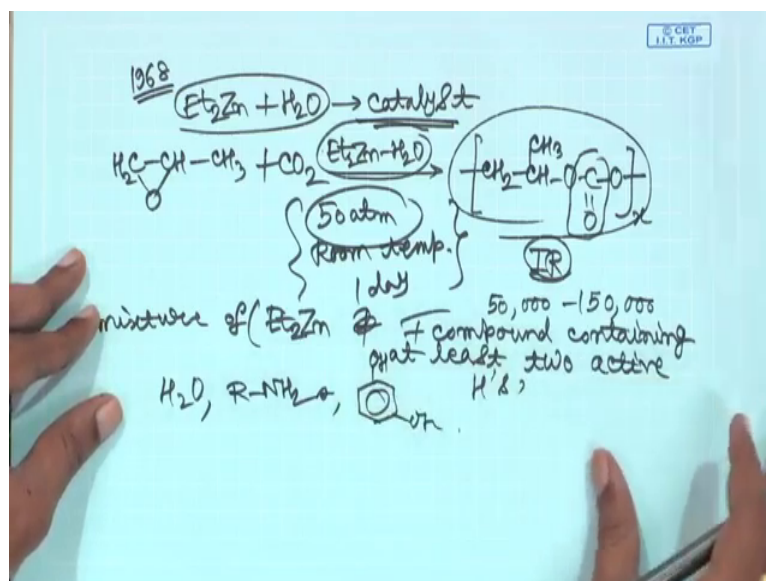 © CET
I.I.T. KGP
1968
Et₂Zn + H₂O → catalyst
H₂C-CH-CH₃ + CO₂ Et₂Zn-H₂O → [CH₂-CH-O-C-O]x
CH₃
O
O
50 atm
Room temp.
1 day
IR
50,000 - 150,000
mixture of (Et₂Zn + compound containing
at least two active
H's,
H₂O, R-NH₂,